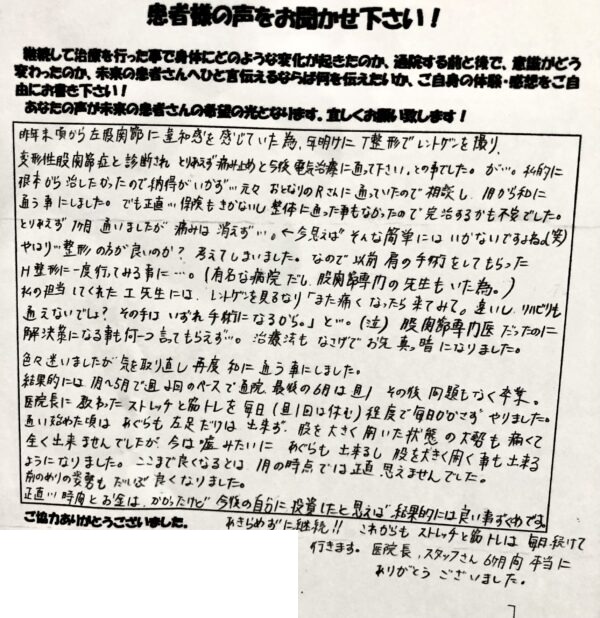 患者様の声をお聞かせ下さい！
継続して治療を行った事で身体にどのような変化が起きたのか、通院する前と後で、意識がどう
変わったのか、未来の患者さんへひと言伝えるならば何を伝えたいか、ご自身の体験・感想をご自
由にお書き下さい！
あなたの声が未来の患者さんの希望の光となります。宜しくお願い致します！
昨年末頃から左股関節に違和感を感じていた為、年明けにT整形でレントゲンを撮り、
変形性股関節症と診断され とりあえず痛み止めと今後電気治療に通って下さい。との事でした。が…。私的に
根本から治したかったので納得がいかず… 元々おとなりのRさんに通っていたので相談し、1月から和に
通う事にしました。でも正直… 保険もきかないし 整体に通った事もなかったので完治するかも不安でした。
とりあえず1ヶ月通いましたが 痛みは消えず…。←今思えばそんな簡単にはいかないですよね(笑)
やはり… 整形の方が良いのか？ 考えてしまいました。なので以前 肩の手術をしてもらった
H整形に一度行ってみる事に…。(有名な病院だし、股関節専門の先生もいた為。)
私の担当してくれたI先生には、レントゲンを見るなり「また痛くなったら来てみて。遠いし、リハビリも
通えないでしょ？ その手はいずれ手術になるから。」と…。(泣) 股関節専門医だったのに
解決策になる事も何一つ言ってもらえず…。治療法もなさげでお先真っ暗になりました。
色々迷いましたが気を取り直し再度 和に通う事にしました。
結果的には1月〜5月で週2回のペースで通院、最後の6月は週1 その後 問題もなく卒業。
医院長に教わったストレッチと筋トレを毎日(週1回は休む)程度で毎日かかさずやりました。
通い始めた頃は あぐらも左足だけは出来ず、股を大きく開いた状態の姿勢も痛くて
全く出来ませんでしたが、今は嘘みたいに あぐらも出来るし 股を大きく開く事も出来る
ようになりました。ここまで良くなるとは 1月の時点では正直 思えませんでした。
前のめりの姿勢もだいぶ良くなりました。
正直… 時間とお金は、かかったけど 今後の自分に投資したと思えば 結果的には良い事ずくめです。
ご協力ありがとうございました。
あきらめずに継続!! これからも ストレッチと筋トレは 毎日続けて
行きます。医院長、スタッフさん 6ヶ月間 本当に
ありがとう ございました。